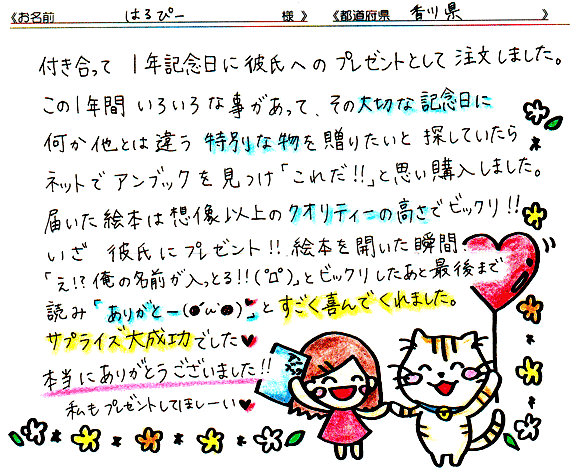 《お名前 はるぴー 様 》 《都道府県 香川県 》
付き合って 1年記念日に彼氏へのプレゼントとして注文しました。
この1年間いろいろな事があって、その大切な記念日に
何か他とは違う 特別な物を贈りたいと探していたら
ネットでアンブックを見つけ「これだ!!」と思い購入しました。
届いた絵本は想像以上のクオリティーの高さでビックリ!!
いざ 彼氏にプレゼント!! 絵本を開いた瞬間、
「え!? 俺の名前が入っとる!!(゜ロ゜)」とビックリしたあと最後まで
読み「ありがとー(●´ω`●)♥」とすごく喜んでくれました。
サプライズ大成功でした♥
本当にありがとうございました!!
私もプレゼントしてほしーい♥